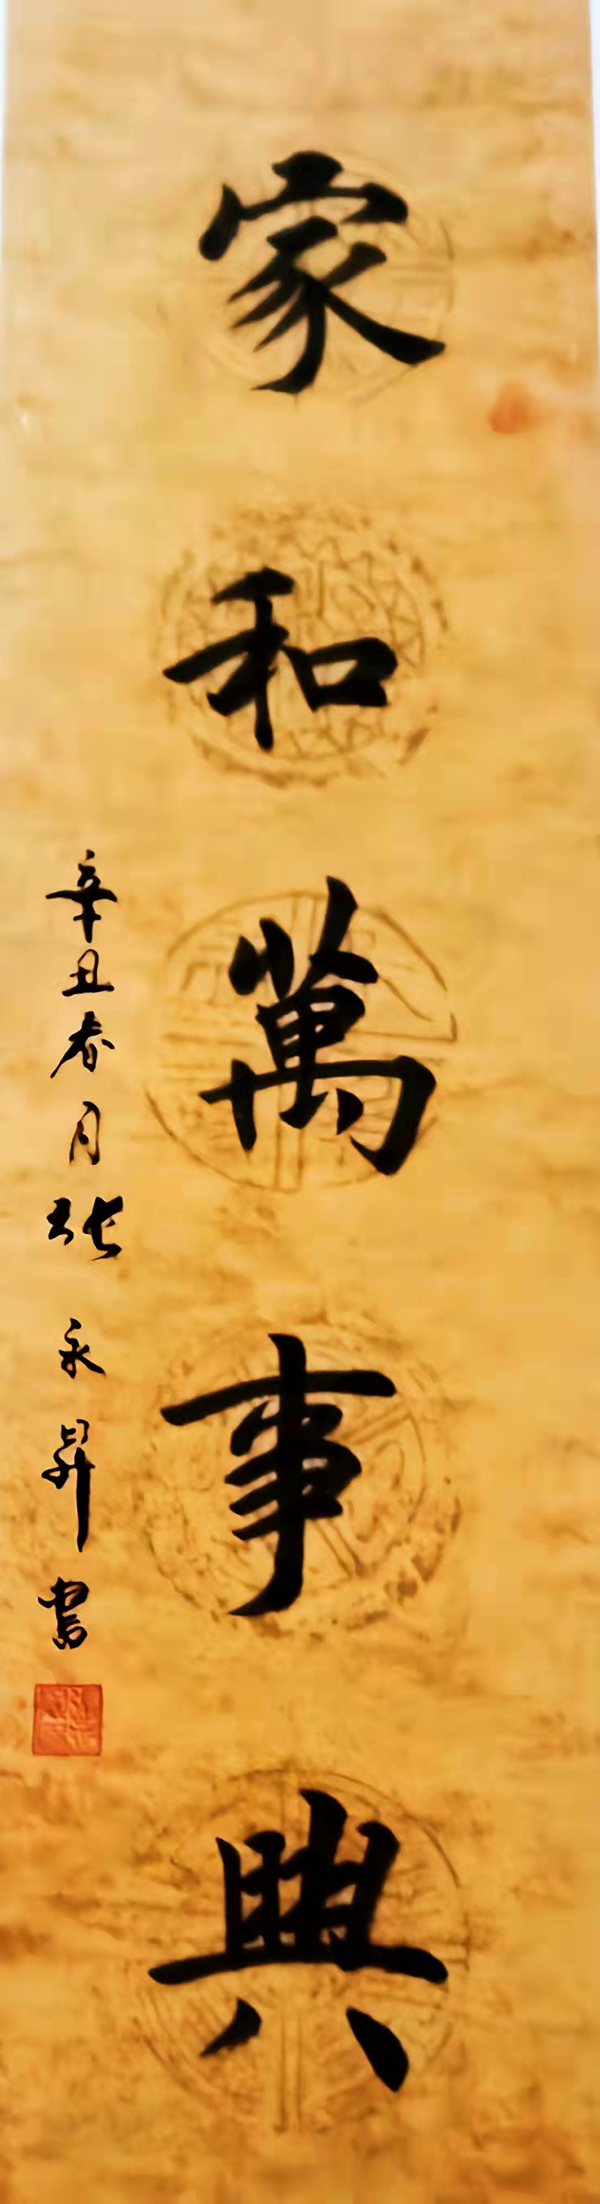 家和萬事興
辛丑春月張永昇書